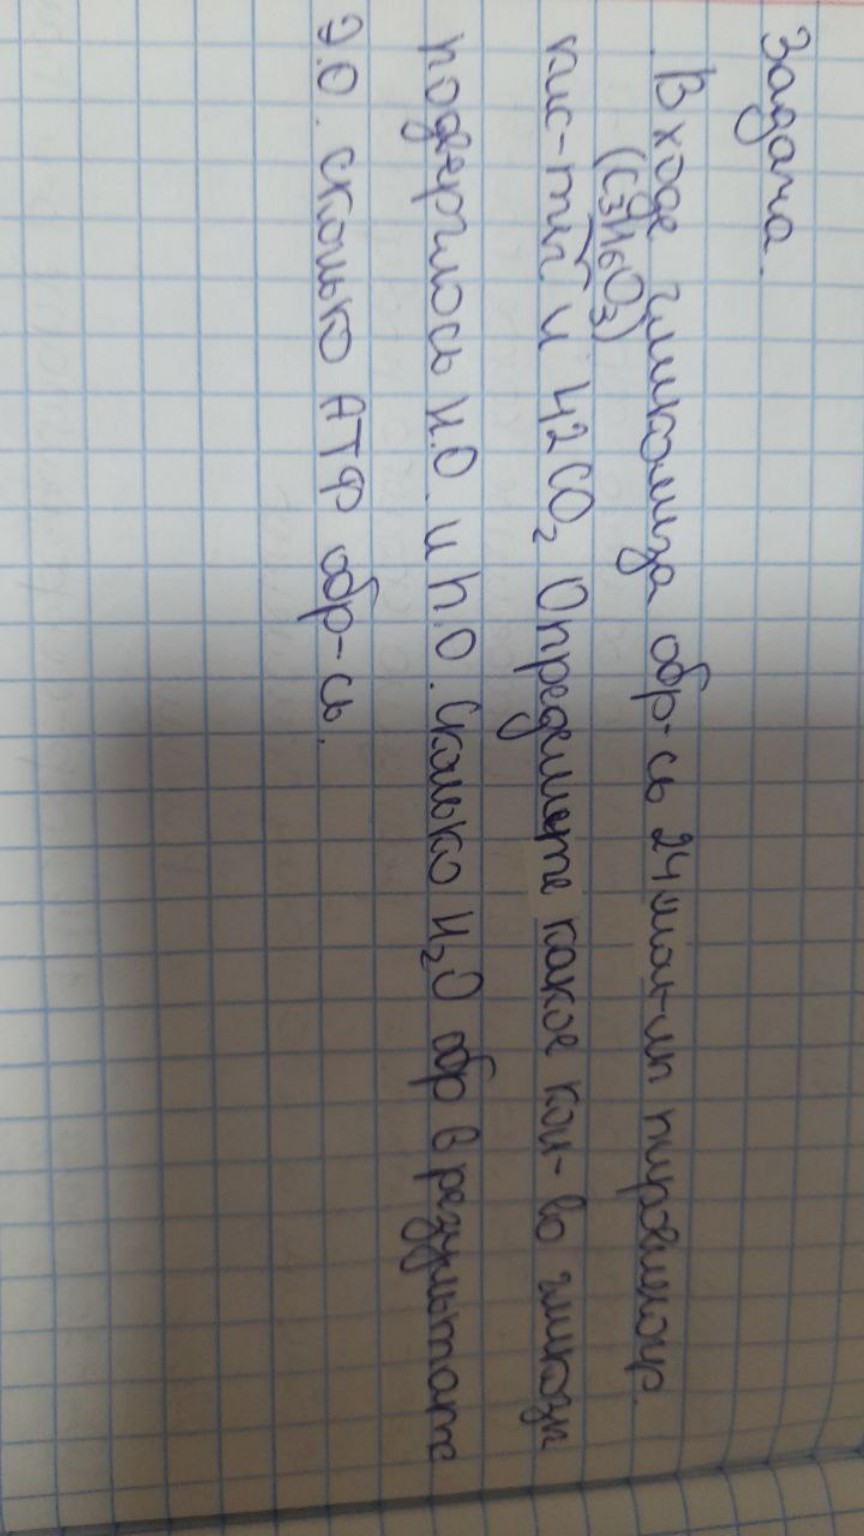 Задача.
В ходе гликолиза обр-сь 24 мол-лы пировиногр.
(C₃H₆O₃)
кис-ты и 42CO₂ Определите какое кол-во глюкозы
подверглось Н.О. и П.О. Сколько H₂O обр в результате
Э.О. сколько АТФ обр-сь.